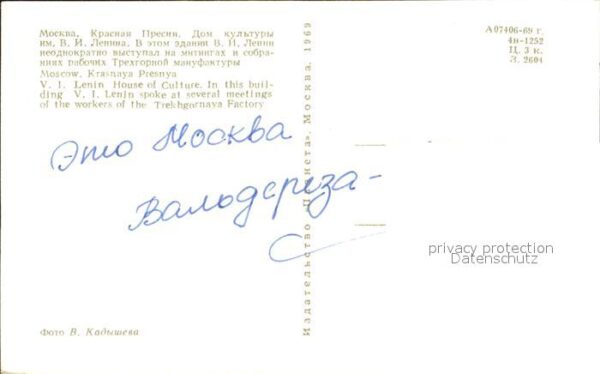 Москва, Красная Пресня. Дом культуры
им. В. И. Ленина. В этом здании В. И. Ленин
неоднократно выступал на митингах и собра-
ниях рабочих Трехгорной мануфактуры
Moscow, Krasnaya Presnya
V. I. Lenin House of Culture. In this buil-
ding V. I. Lenin spoke at several meetings
of the workers of the Trekhgornaya Factory
А07406-69 г.
4н-1252
Ц. 3 к.
З. 2604
Издательство «Планета». Москва. 1969
Это Москва
privacy protection
Datenschutz
Фото В. Кадышева